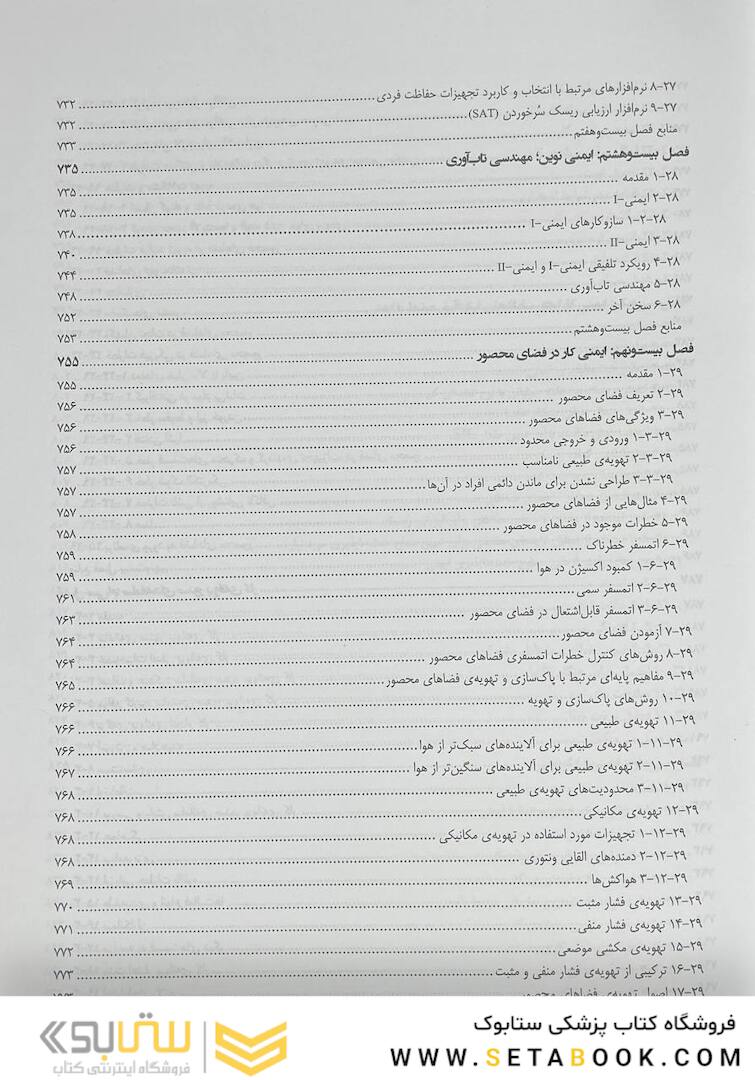 ۸-۲۷ نرم‌افزارهای مرتبط با انتخاب و کاربرد تجهیزات حفاظت فردی ........ ۷۳۲
۹-۲۷ نرم‌افزار ارزیابی ریسک سُرخوردن (SAT) ........ ۷۳۲
منابع فصل بیست‌وهفتم ........ ۷۳۳
فصل بیست‌وهشتم: ایمنی نوین؛ مهندسی تاب‌آوری ........ ۷۳۵
۱-۲۸ مقدمه ........ ۷۳۵
۲-۲۸ ایمنی-I ........ ۷۳۵
۱-۲-۲۸ سازوکارهای ایمنی-I ........ ۷۳۸
۳-۲۸ ایمنی-II ........ ۷۴۰
۴-۲۸ رویکرد تلفیقی ایمنی-I و ایمنی-II ........ ۷۴۴
۵-۲۸ مهندسی تاب‌آوری ........ ۷۴۸
۶-۲۸ سخن آخر ........ ۷۵۲
منابع فصل بیست‌وهشتم ........ ۷۵۳
فصل بیست‌ونهم: ایمنی کار در فضای محصور ........ ۷۵۵
۱-۲۹ مقدمه ........ ۷۵۵
۲-۲۹ تعریف فضای محصور ........ ۷۵۶
۳-۲۹ ویژگی‌های فضاهای محصور ........ ۷۵۶
۱-۳-۲۹ ورودی و خروجی محدود ........ ۷۵۶
۲-۳-۲۹ تهویه‌ی طبیعی نامناسب ........ ۷۵۷
۳-۳-۲۹ طراحی نشدن برای ماندن دائمی افراد در آن‌ها ........ ۷۵۷
۴-۲۹ مثال‌هایی از فضاهای محصور ........ ۷۵۷
۵-۲۹ خطرات موجود در فضاهای محصور ........ ۷۵۸
۶-۲۹ اتمسفر خطرناک ........ ۷۵۹
۱-۶-۲۹ کمبود اکسیژن در هوا ........ ۷۵۹
۲-۶-۲۹ اتمسفر سمی ........ ۷۶۱
۳-۶-۲۹ اتمسفر قابل‌اشتعال در فضای محصور ........ ۷۶۳
۷-۲۹ آزمودن فضای محصور ........ ۷۶۴
۸-۲۹ روش‌های کنترل خطرات اتمسفری فضاهای محصور ........ ۷۶۴
۹-۲۹ مفاهیم پایه‌ای مرتبط با پاک‌سازی و تهویه‌ی فضاهای محصور ........ ۷۶۵
۱۰-۲۹ روش‌های پاک‌سازی و تهویه ........ ۷۶۶
۱۱-۲۹ تهویه‌ی طبیعی ........ ۷۶۶
۱-۱۱-۲۹ تهویه‌ی طبیعی برای آلاینده‌های سبک‌تر از هوا ........ ۷۶۶
۲-۱۱-۲۹ تهویه‌ی طبیعی برای آلاینده‌های سنگین‌تر از هوا ........ ۷۶۷
۳-۱۱-۲۹ محدودیت‌های تهویه‌ی طبیعی ........ ۷۶۸
۱۲-۲۹ تهویه‌ی مکانیکی ........ ۷۶۸
۱-۱۲-۲۹ تجهیزات مورد استفاده در تهویه‌ی مکانیکی ........ ۷۶۸
۲-۱۲-۲۹ دمنده‌های القایی ونتوری ........ ۷۶۸
۳-۱۲-۲۹ هواکش‌ها ........ ۷۶۹
۱۳-۲۹ تهویه‌ی فشار مثبت ........ ۷۷۰
۱۴-۲۹ تهویه‌ی فشار منفی ........ ۷۷۱
۱۵-۲۹ تهویه‌ی مکشی موضعی ........ ۷۷۲
۱۶-۲۹ ترکیبی از تهویه‌ی فشار منفی و مثبت ........ ۷۷۳
۱۷-۲۹ اصول تهویه‌ی فضاهای محصور ........
فروشگاه کتاب پزشکی ستابوک
WWW.SETABOOK.COM
ستابوک
فروشگاه اینترنتی کتاب